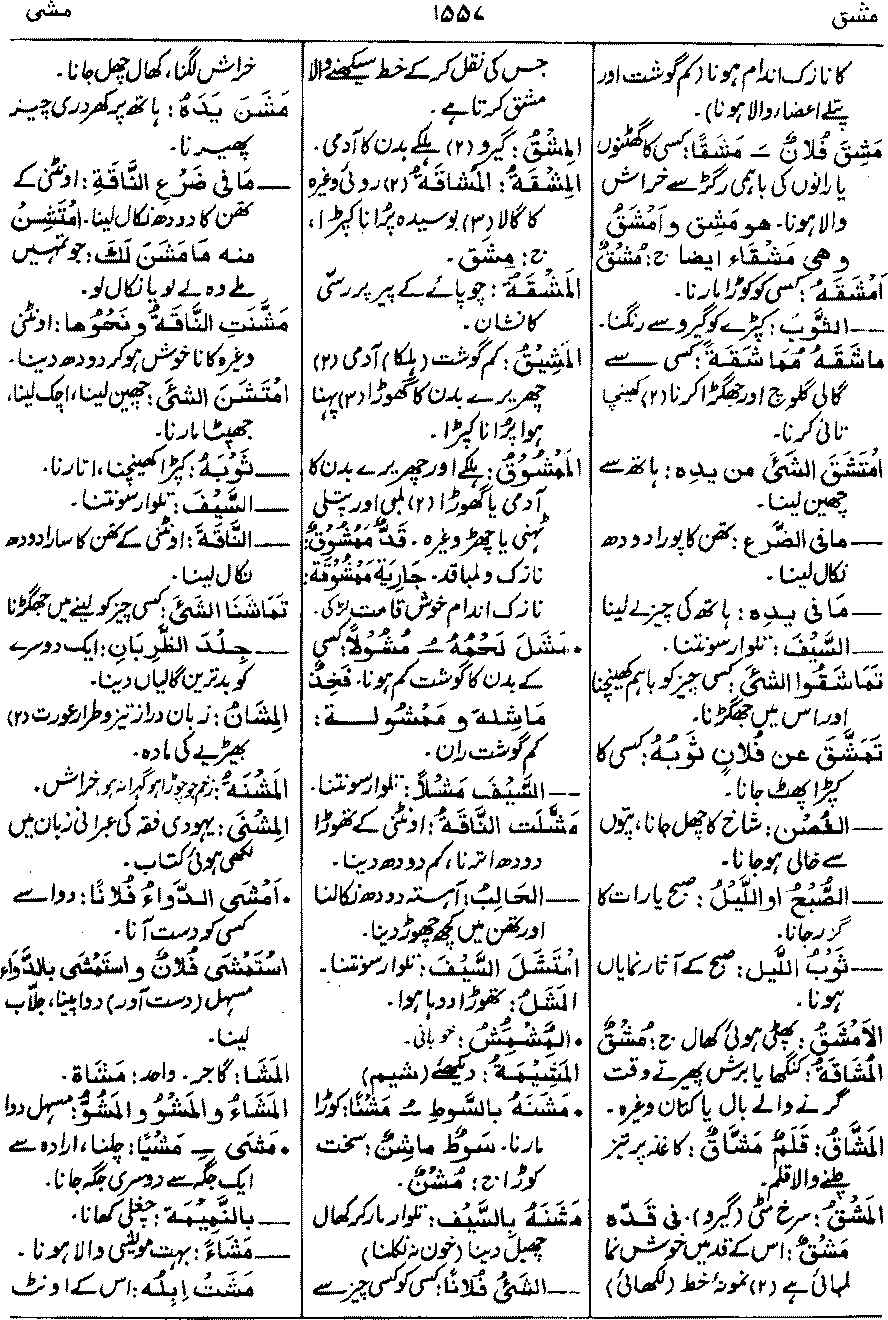 مشق
۱۵۵۷
مشی
کا نازک اندام ہونا (کم گوشت اور
پتلے اعضاء والا ہونا)۔
مَشِقَ فُلانٌ ــَـ مَشَقًا: کسی کا گھٹنوں
یا رانوں کی باہمی رگڑ سے خراش
والا ہونا۔ هو مَشِق و اَمْشَقُ
و هی مَشْقَاء ایضا ج: مُشْقٌ
اَمْشَقَهُ: کسی کو کوڑا مارنا۔
ــــ الثَّوْبَ: کپڑے کو گیرو سے رنگنا۔
ماشَقَهُ مُمَاشَقَةً: کسی سے
گالی گلوچ اور جھگڑا کرنا (۲) کھینچا
تانی کرنا۔
اِمْتَشَقَ الشئَ من یدِه: ہاتھ سے
چھین لینا۔
ــــ مافی الضَّرْعِ: تھن کا پورا دودھ
نکال لینا۔
ــــ مَا فی یدِه: ہاتھ کی چیز لے لینا
ــــ السَّیْفَ: تلوار سونتنا۔
تَمَاشَقُوا الشئَ: کسی چیز کو باہم کھینچنا
اور اس میں جھگڑنا۔
تَمَشَّقَ عن فُلانٍ ثَوْبُهُ: کسی کا
کپڑا پھٹ جانا۔
ــــ الغُصْنُ: شاخ کا چھل جانا، پتوں
سے خالی ہو جانا۔
ــــ الصُّبْحُ اَو اللَّیْلُ: صبح یا رات کا
گزر جانا۔
ــــ ثَوْبُ اللَّیل: صبح کے آثار نمایاں
ہونا۔
الاَمْشَقُ: پھٹی ہوئی کھال ج: مُشْقٌ
المُشَاقَةُ: کنگھا یا برش پھیرتے وقت
گرنے والے بال یا کتان وغیرہ۔
المَشَّاقُ: قَلَمٌ مَشَّاقٌ: کاغذ پر تیز
چلنے والا قلم۔
المَشْقُ: سرخ مٹی (گیرو)۔ فی قَدِّه
مَشْقٌ: اس کے قد میں خوش نما
لمبائی ہے (۲) نمونۂ خط (لکھائی)
جس کی نقل کر کے خط سیکھنے والا
مشق کرتا ہے۔
المِشْقُ: گیرو (۲) ہلکے بدن کا آدمی۔
المِشْقَةُ: المُشَاقَةُ (۲) روئی وغیرہ
کا گالا (۳) بوسیدہ پرانا کپڑا،
ج: مِشَق۔
المَشْقَةُ: چوپائے کے پیر پر رسی
کا نشان۔
المَشِیْقُ: کم گوشت (ہلکا) آدمی (۲)
چھریرے بدن کا گھوڑا (۳) پہنا
ہوا پرانا کپڑا۔
المَمْشُوْقُ: ہلکے اور چھریرے بدن کا
آدمی یا گھوڑا (۲) لمبی اور پتلی
ٹہنی یا چھڑ وغیرہ۔ قَدٌّ مَمْشُوْقٌ:
نازک و لمبا قد۔ جَارِیَة مَمْشُوقَة:
نازک اندام خوش قامت لڑکی۔
• مَشَلَ لَحْمُهُ ــُـ مُشُوْلاً: کسی
کے بدن کا گوشت کم ہونا۔ فَخِذٌ
مَاشِلة و مَمْشُولـة:
کم گوشت ران۔
ــــ السَّیْفَ مَشْلاً: تلوار سونتنا۔
مَشَّلَتِ النَّاقَةُ: اونٹنی کے تھوڑا
دودھ اترنا، کم دودھ دینا۔
ــــ الحَالِبُ: آہستہ دودھ نکالنا
اور تھن میں کچھ چھوڑ دینا۔
اِمْتَشَلَ السَّیْفَ: تلوار سونتنا۔
المَشَلُ: تھوڑا دوہا ہوا۔
• المِشْمِشُ: خوبانی۔
المَشِیْمَةُ: دیکھئے (شیم)
• مَشَنَهُ بالسَّوطِ ــُـ مَشْنًا: کوڑا
مارنا۔ سَوْطٌ مَاشِنٌ: سخت
کوڑا ج: مُشَّنٌ۔
مَشَنَهُ بِالسَّیْفِ: تلوار مار کر کھال
چھیل دینا (خون نہ نکلنا)
ــــ الشئُ فُلانًا: کسی کو کسی چیز سے
خراش لگنا، کھال چھل جانا۔
مَشَنَ یَدَهُ: ہاتھ پر کھردری چیز
پھیرنا۔
ــــ مَا فی ضَرْعِ النَّاقَةِ: اونٹنی کے
تھن کا دودھ نکال لینا۔ اِمْتَشِنْ
منه مَا مَشَنَ لَكَ: جو تمہیں
ملے وہ لے لو یا نکال لو۔
مَشَّنَتِ النَّاقَةُ و نَحْوُها: اونٹنی
وغیرہ کا ناخوش ہو کر دودھ دینا۔
اِمْتَشَنَ الشئَ: چھین لینا، اچک لینا،
جھپٹا مارنا۔
ــــ ثَوْبَهُ: کپڑا کھینچنا، اتارنا۔
ــــ السَّیْفَ: تلوار سونتنا۔
ــــ النَّاقَةَ: اونٹنی کے تھن کا سارا دودھ
نکال لینا۔
تَمَاشَنَا الشئَ: کسی چیز کو لینے میں جھگڑنا
ــــ جِلْدَ الظَّرِبَانِ: ایک دوسرے
کو بدترین گالیاں دینا۔
المِشَانُ: زبان دراز تیز و طرار عورت (۲)
بھیڑیے کی مادہ۔
المَشْنَةُ: زخم جو چوڑا ہو گہرا نہ ہو خراش۔
المِشْنَی: یہودی فقہ کی عبرانی زبان میں
لکھی ہوئی کتاب۔
• اَمْشَی الـدَّوَاءُ فُلانًا: دوا سے
کسی کو دست آنا۔
اسْتَمْشَی فُلانٌ و استَمْشَی بالدَّوَاءِ
مسہل (دست آور) دوا پینا، جلاب
لینا۔
المَشَا: گاجر۔ واحد: مَشَاة۔
المَشَاءُ و المَشْوُ و المَشُوُّ: مسہل دوا
• مَشَی ــِـ مَشْیًا: چلنا، ارادہ سے
ایک جگہ سے دوسری جگہ جانا۔
ــــ بالنَّمِیْمَةِ: چغلی کھانا۔
ــــ مَشَاءً: بہت مویشی والا ہونا۔
مَشَتْ اِبِلُه: اس کے اونٹ